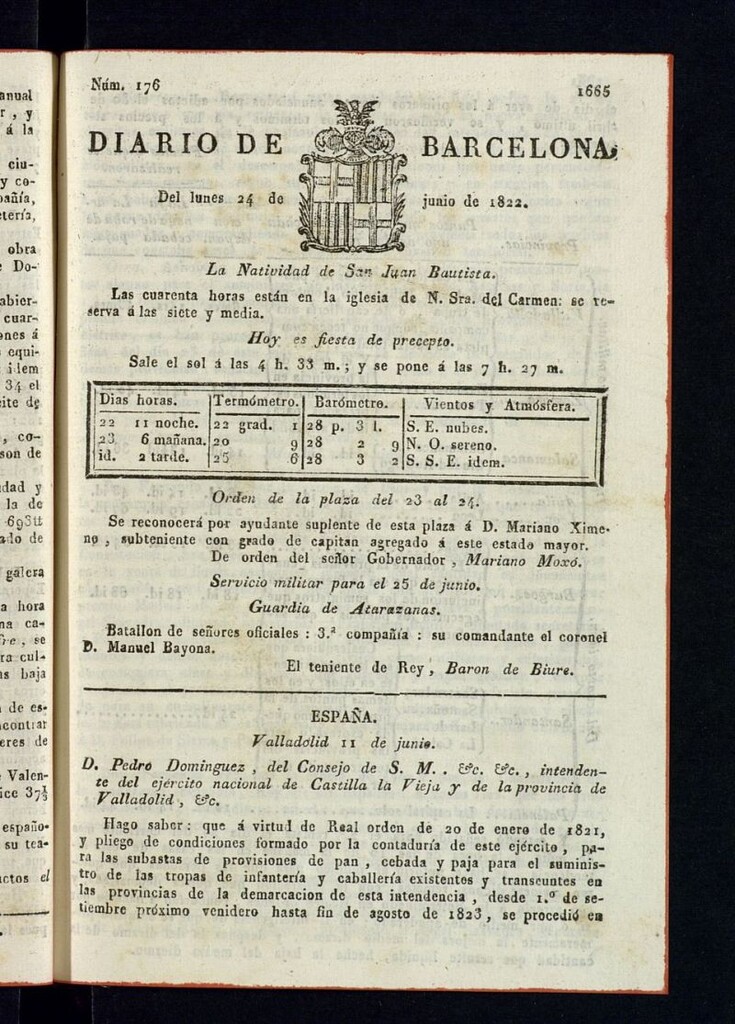 anual
r, y
á la
ciu-
y co-
pañía,
etería,
obra
e Do-
abier-
cuar-
ones á
equi-
idem
34 el
ite de
, co-
son de
dad y
la de
693tt
ado de
galera
a hora
na ca-
fre, se
ra cul-
as baja
de es-
contrar
eres de
Valen-
ice 37½
españo-
su tea-
actos el
Núm. 176
1665
DIARIO DE BARCELONA,
Del lunes 24 de junio de 1822.
La Natividad de San Juan Bautista.
Las cuarenta horas están en la iglesia de N. Sra. del Carmen: se re-
serva á las siete y media.
Hoy es fiesta de precepto.
Sale el sol á las 4 h. 33 m.; y se pone á las 7 h. 27 m.
Dias horas. Termómetro. Barómetro. Vientos y Atmósfera.
22 11 noche. 22 grad. 1 28 p. 3 l. S. E. nubes.
23 6 mañana. 20 9 28 2 9 N. O. sereno.
id. 2 tarde. 25 6 28 3 2 S. S. E. idem.
Orden de la plaza del 23 al 24.
Se reconocerá por ayudante suplente de esta plaza á D. Mariano Xime-
no, subteniente con grado de capitan agregado á este estado mayor.
De orden del señor Gobernador, Mariano Moxó.
Servicio militar para el 25 de junio.
Guardia de Atarazanas.
Batallon de señores oficiales: 3.ª compañía: su comandante el coronel
D. Manuel Bayona.
El teniente de Rey, Baron de Biure.
ESPAÑA.
Valladolid 11 de junio.
D. Pedro Dominguez, del Consejo de S. M. . &c. &c., intenden-
te del ejército nacional de Castilla la Vieja y de la provincia de
Valladolid, &c.
Hago saber: que á virtud de Real orden de 20 de enero de 1821,
y pliego de condiciones formado por la contaduría de este ejército, pa-
ra las subastas de provisiones de pan, cebada y paja para el suminis-
tro de las tropas de infantería y caballería existentes y transeuntes en
las provincias de la demarcacion de esta intendencia, desde 1.º de se-
tiembre próximo venidero hasta fin de agosto de 1823, se procedió en